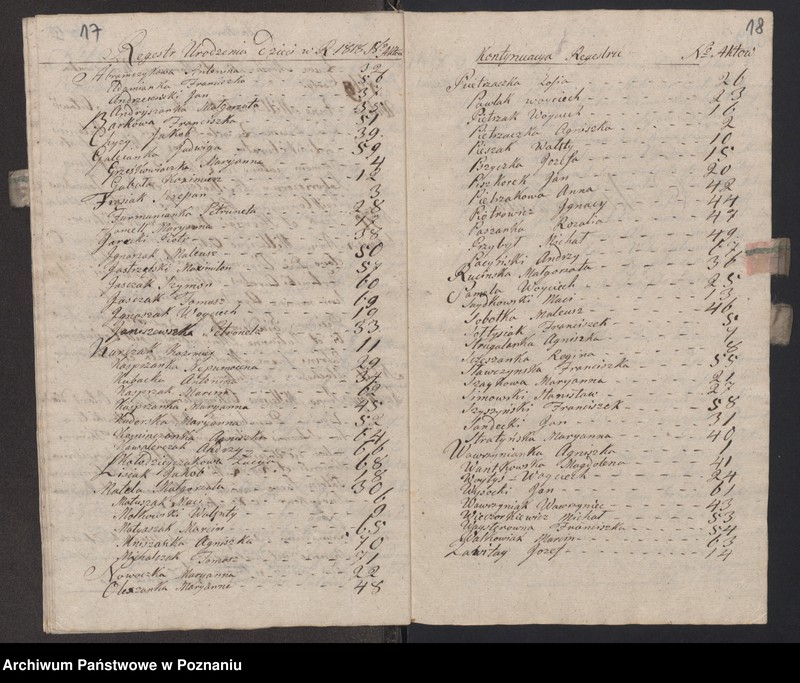 17
Regestr Urodzenia Dzieci w R 1818 No Aktow
Abramczykowa Antonina 32
Adamianka Franciszka 56
Andrzejewski Jan
Andryszanka Małgorzata 55
Barkowa Franciszka 51
Czyż Jakob 39
Galcianka Jadwiga 59
Grześkowiaczka Maryanna 4
Gabała Kazimierz 12
Frasiak Szczepan 3
Furmanianka Petronela 28
Maryanna
Jarecki Piotr 38
Ignorzak Mateusz 50
Jastrzębski Maximilian 57
Jaszczak Szymon 60
Jaszczak Tomasz 69
Ignaszak Woyciech 19
Janiszewska Petronela 33
Karczak Kazimierz 11
Kasprzanka Nepomucena 29
Kubacka Antonina 34
Kasprzak Marcin
Kasprzanka Maryanna 45
Kudonka Maryanna 52
Agniszka 64
Kowalczak Andrzy
Lucya 68
Lisiak Jakob 8
Matela Małgorzata 30
Matuszak Maci 6
Małkowski Walenty 9
Matyaszak Marcin 65
Mniszanka Agniszka 70
Michalczak Tomasz
Nowaczka Maryanna 22
Olszanka Maryanna 48
18
Kontynuacya Regestru No Aktow
Pietrzaczka Zofia 26
Pawlak Woyciech 23
Pietrzak Woyciech 16
Pietrzaczka Agniszka 2
Pieszak Walęty 10
Pożyczka Jozefa 15
Piszkorek Jan 20
Pietrzakowa Anna 42
Piętrowicz Ignacy 44
Paszanka Rozalia 47
Przybył Michał 49
Pacyński Andrzy 67
Rucinska Małgorzata 36
Pamęta Woyciech 25
Szydkowski Maci 13
Sobotka Mateusz 46
Sołtysiak Franciszek 5
Strugalanka Agniszka 7
Szeszanka Rogina 18
Sławczynska Franciszka 55
Szaykowa Maryanna 21
Simowski Stanisław 27
Szyszyński Franciszek 58
Sandecki Jan 31
Stratyńska Maryanna 40
Wawrzynianka Agniszka 1
Wantkowska Magdolena 41
Woytyś Woyciech 24
Wysocki Jan 61
Wawrzyniak Wawrzyniec 43
Wieczorkiewicz Michał 53
Franciszka 54
Walkowiak Marcin 63
Jozef 14
Archiwum Państwowe w Poznaniu